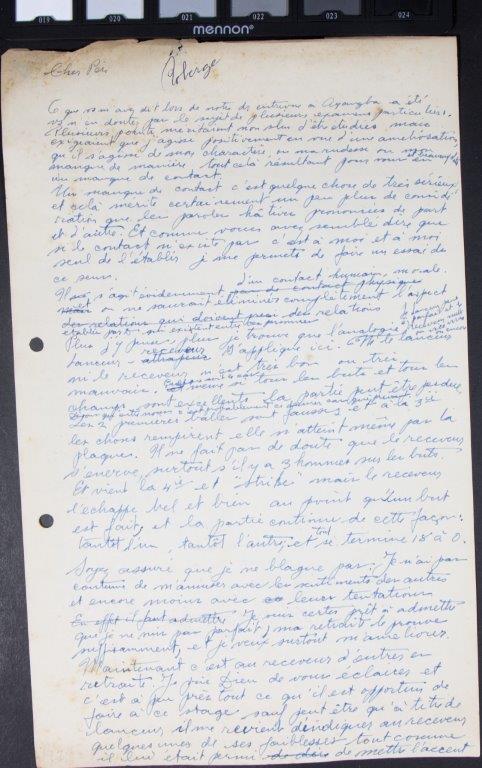 019 020 021 022 023 024
mennon
Cher Père
Roberge
Ce que vous m'avez dit lors de notre entrevue à Ayangba a été
mis en doute par le sujet de plusieurs examens particuliers.
Plusieurs points méritaient non plus d'être étudiés, mais
exigeaient que j'agisse positivement en vue d'une amélioration,
qu'il s'agisse de mon caractère ou ma rudesse ou mon
manque de manière tout cela résultant pour vous d'un
manque de contact.
Un manque de contact c'est quelque chose de très sérieux
et celà mérite certainement un peu plus de considé-
ration que les paroles hâtives prononcées de part
et d'autre. Et comme vous avez semblé dire que
si le contact n'existe pas c'est à moi et à moi
seul de l'établir je me permets de faire un essai de
ce genre.
Il s'agit évidemment d'un contact humain, morale.
on ne saurait éliminer complètement l'aspect
des relations
Plus j'y pense plus je trouve que l'analogie
lanceur - receveur s'applique ici. Ni le lanceur
ni le receveur n'est très bon ou très
mauvais. si tous les buts et tous les
champs sont excellents la partie peut être perdue.
Les 2 premières balles sont fausses et à la 3e
les chons rempirent elle n'atteint même pas la
plaque. Il ne fait pas de doute que le receveur
s'énerve, surtout s'il y a 3 hommes sur les buts.
Et vient la 4e et "strike" mais le receveur
l'échappe bel et bien au point qu'un but
est fait, et la partie continue de cette façon:
tantôt l'un, tantôt l'autre, et tout se termine 18 à 0.
Soyez assuré que je ne blague pas. Je n'ai pas
coutume de m'amuser avec les sentiments des autres
et encore moins avec leurs tentations
En effet il faut admettre Je suis certes prêt à admettre
que je ne suis pas parfait, ma retraite le prouve
suffisamment, et je veux surtout m'améliorer.
Maintenant c'est au receveur d'entrer en
retraite. Je prie Dieu de vous éclairer et
c'est à peu près tout ce qu'il est opportun de
faire à ce stage sauf peut être qu'à titre de
lanceur, il me revient d'indiquer au receveur
quelques unes de ses faiblesses tout comme
il lui était permis de mettre l'accent